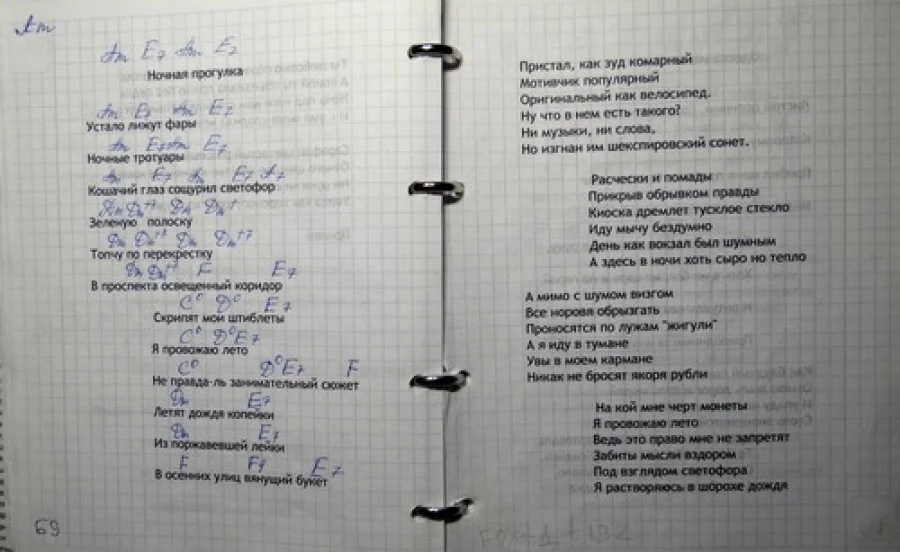 Am
Am E7 Am E7
Ночная прогулка
Am E7 Am E7
Устало лижут фары
Am E7 Am E7
Ночные тротуары
Am E7 Am E7 A7
Кошачий глаз сощурил светофор
Dm Dm+7 Dm Dm+7
Зеленую полоску
Dm Dm+7 Dm Dm+7
Топчу по перекрестку
Dm Dm+7 F E7
В проспекта освещенный коридор
C° D° E7
Скрипят мои штиблеты
C° D° E7
Я провожаю лето
C° D° E7 F
Не правда-ль занимательный сюжет
Dm E7
Летят дождя копейки
Dm E7
Из поржавевшей лейки
F E7
В осенних улиц вянущий букет
69
Пристал, как зуд комарный
Мотивчик популярный
Оригинальный как велосипед.
Ну что в нем есть такого?
Ни музыки, ни слова,
Но изгнан им шекспировский сонет.
Расчески и помады
Прикрыв обрывком правды
Киоска дремлет тусклое стекло
Иду мычу бездумно
День как вокзал был шумным
А здесь в ночи хоть сыро но тепло
А мимо с шумом визгом
Все норовя обрызгать
Проносятся по лужам "жигули"
А я иду в тумане
Увы в моем кармане
Никак не бросят якоря рубли
На кой мне черт монеты
Я провожаю лето
Ведь это право мне не запретят
Забиты мысли вздором
Под взглядом светофора
Я растворяюсь в шорохе дождя